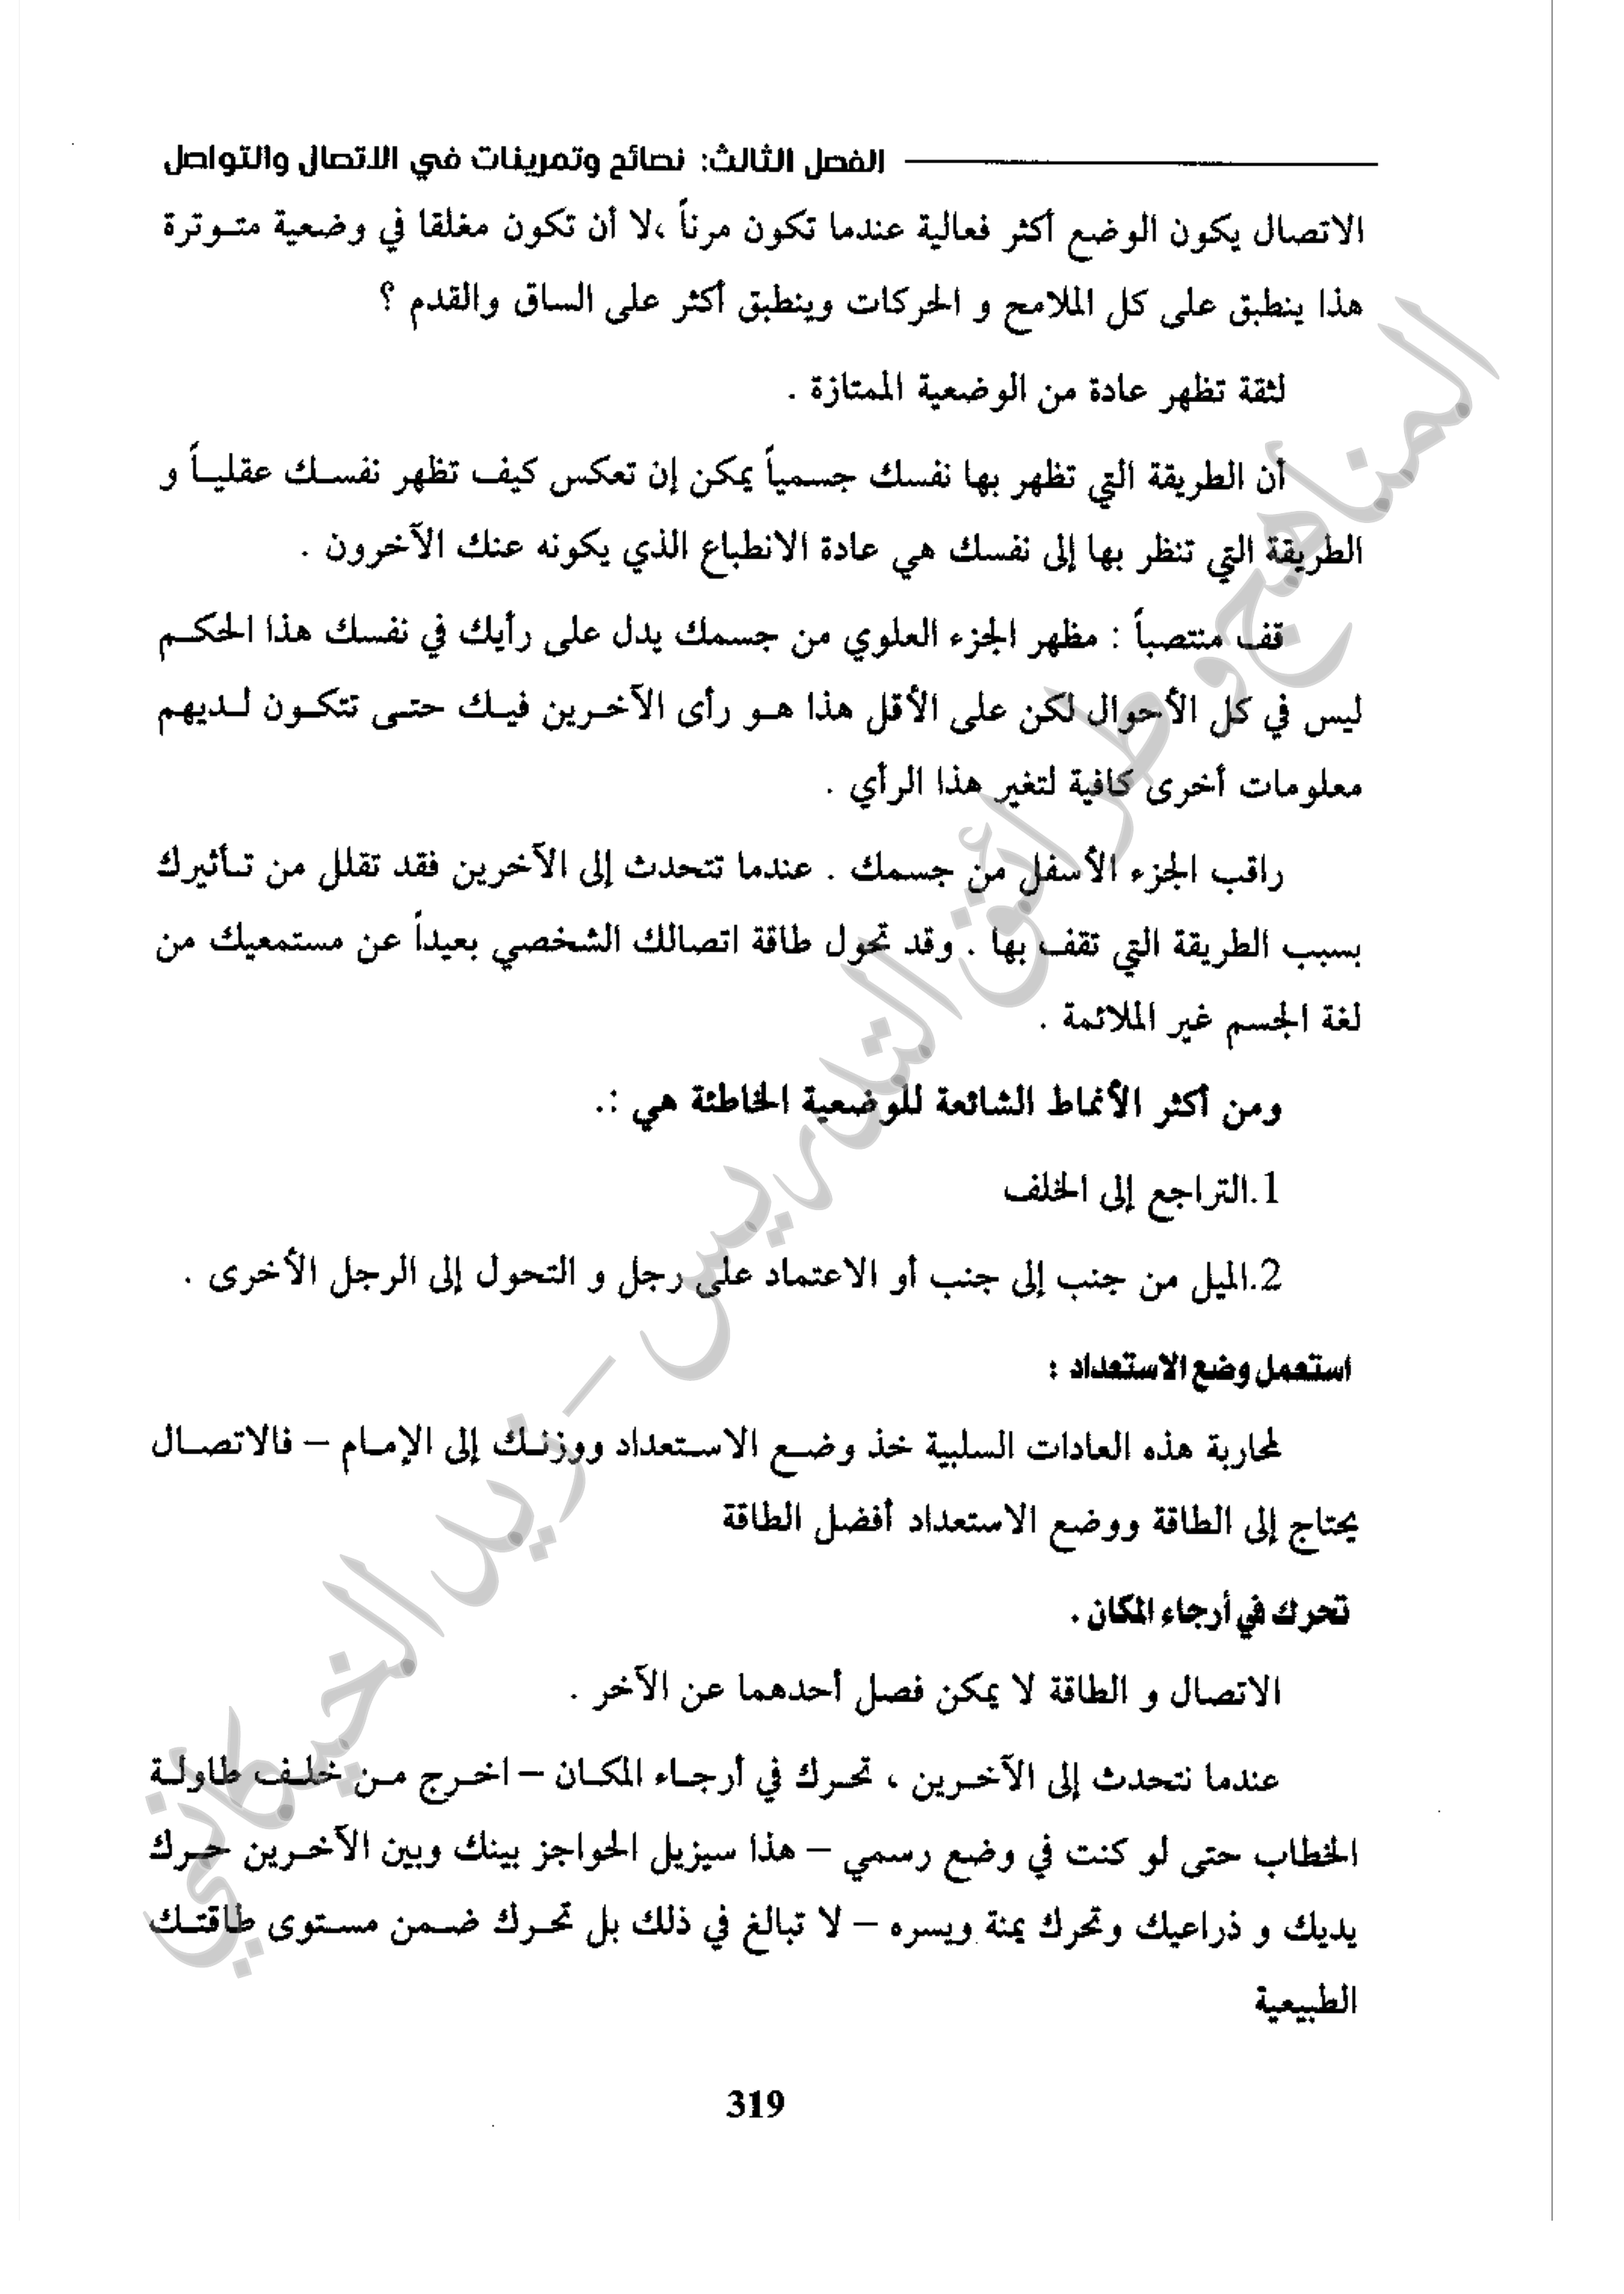 الفصل الثالث: نصائح وتمرينات في الاتصال والتواصل
الاتصال يكون الوضع أكثر فعالية عندما تكون مرناً ،لا أن تكون مغلقا في وضعية متـوترة
هذا ينطبق على كل الملامح و الحركات وينطبق أكثر على الساق والقدم ؟
لثقة تظهر عادة من الوضعية الممتازة .
أن الطريقة التي تظهر بها نفسك جسمياً يمكن إن تعكس كيف تظهر نفسـك عقليـاً و
الطريقة التي تنظر بها إلى نفسك هي عادة الانطباع الذي يكونه عنك الآخرون .
قف منتصباً : مظهر الجزء العلوي من جسمك يدل على رأيك في نفسك هذا الحكـم
ليس في كل الأحوال لكن على الأقل هذا هـو رأى الآخـرين فيـك حتـى تتكـون لـديهم
معلومات أخرى كافية لتغير هذا الرأي .
راقب الجزء الأسفل من جسمك . عندما تتحدث إلى الآخرين فقد تقلل من تـأثيرك
بسبب الطريقة التي تقف بها . وقد تحول طاقة اتصالك الشخصي بعيداً عن مستمعيك من
لغة الجسم غير الملائمة .
ومن أكثر الأنماط الشائعة للوضعية الخاطئة هي :.
1.التراجع إلى الخلف
2.الميل من جنب إلى جنب أو الاعتماد على رجل و التحول إلى الرجل الأخرى .
استعمل وضع الاستعداد :
لمحاربة هذه العادات السلبية خذ وضـع الاسـتعداد ووزنـك إلى الإمـام – فالاتصـال
يحتاج إلى الطاقة ووضع الاستعداد أفضل الطاقة
تحرك في أرجاء المكان .
الاتصال و الطاقة لا يمكن فصل أحدهما عن الآخر .
عندما نتحدث إلى الآخـرين ، تحـرك في أرجـاء المكـان – اخـرج مـن خلـف طاولـة
الخطاب حتى لو كنت في وضع رسمي – هذا سيزيل الحواجز بينك وبين الآخـرين حـرك
يديك و ذراعيك وتحرك يمنة ويسره – لا تبالغ في ذلك بل تحـرك ضـمن مسـتوى طاقتـك
الطبيعية
319
المناهج وطرائق التدريس – زيد الخيكاني